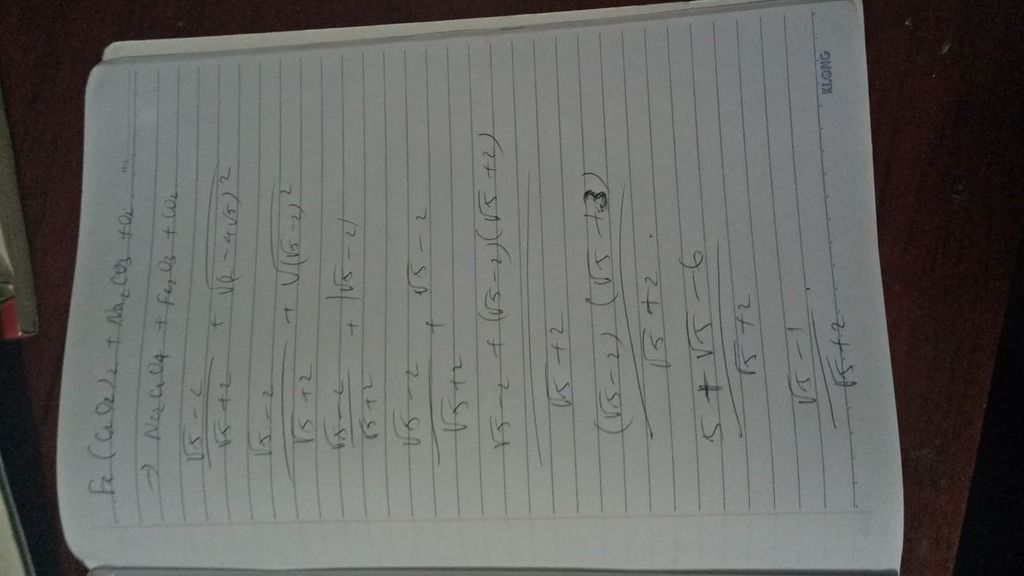 No.
Fe(CrO₂)₂ + Na₂CO₃ + O₂
→ Na₂CrO₄ + Fe₂O₃ + CO₂
(√5 - 2)/(√5 + 2) + √(2 - 4√5)²
(√5 - 2)/(√5 + 2) + √(√5 - 2)²
(√5 - 2)/(√5 + 2) + |√5 - 2|
(√5 - 2)/(√5 + 2) + √5 - 2
(√5 - 2 + (√5 - 2)(√5 + 2))/(√5 + 2)
((√5 - 2)(√5 + 3))/(√5 + 2)
(5 + √5 - 6)/(√5 + 2)
(√5 - 1)/(√5 + 2)
KLONG